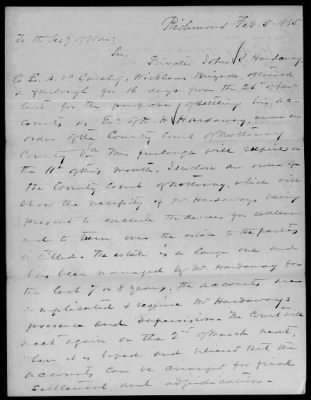 Richmond Feb. 5. 1865
To the Secy of War,
Sir,
Private John S. Hardaway
Co E. 4 Va Cavalry, Wickhams Brigade, obtained
a furlough for 16 days from the 26th of Jan
last for the purpose of settling his ac-
counts as Exr of H. Hardaway, under an
order of the County Court of Nottoway
County Va. The furlough will expire on
the 11th of this month. I enclose an order of
the County Court of Nottoway, which will
show the necessity of Mr Hardaway's being
present to execute the decree for settlement
and to turn over the estate to the parties
entitled. The estate is a large one and
has been managed by Mr Hardaway for
the last 7 or 8 years, the accounts are
complicated & require Mr Hardaway's
presence and supervision. The Court will
meet again on the 2nd of March next,
when it is hoped and believed that the
accounts can be arranged for final
settlement and adjudication.